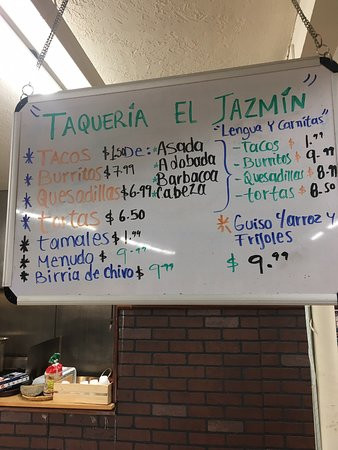 "TAQUERÍA EL JAZMÍN"
* TACOS $1.50 De: * Asada
* Burritos $7.99 * Adobada
* Quesadillas $6.99 * Barbacoa
* Cabeza
* tortas $6.50
* tamales $1.99
* Menudo $9.99
* Birria de chivo $9.99
"Lengua Y Carnitas"
- Tacos $1.99
- Burritos $9.99
- Quesadillas $8.99
- tortas $8.50
* Guiso Y/arroz y
Frijoles
$9.99